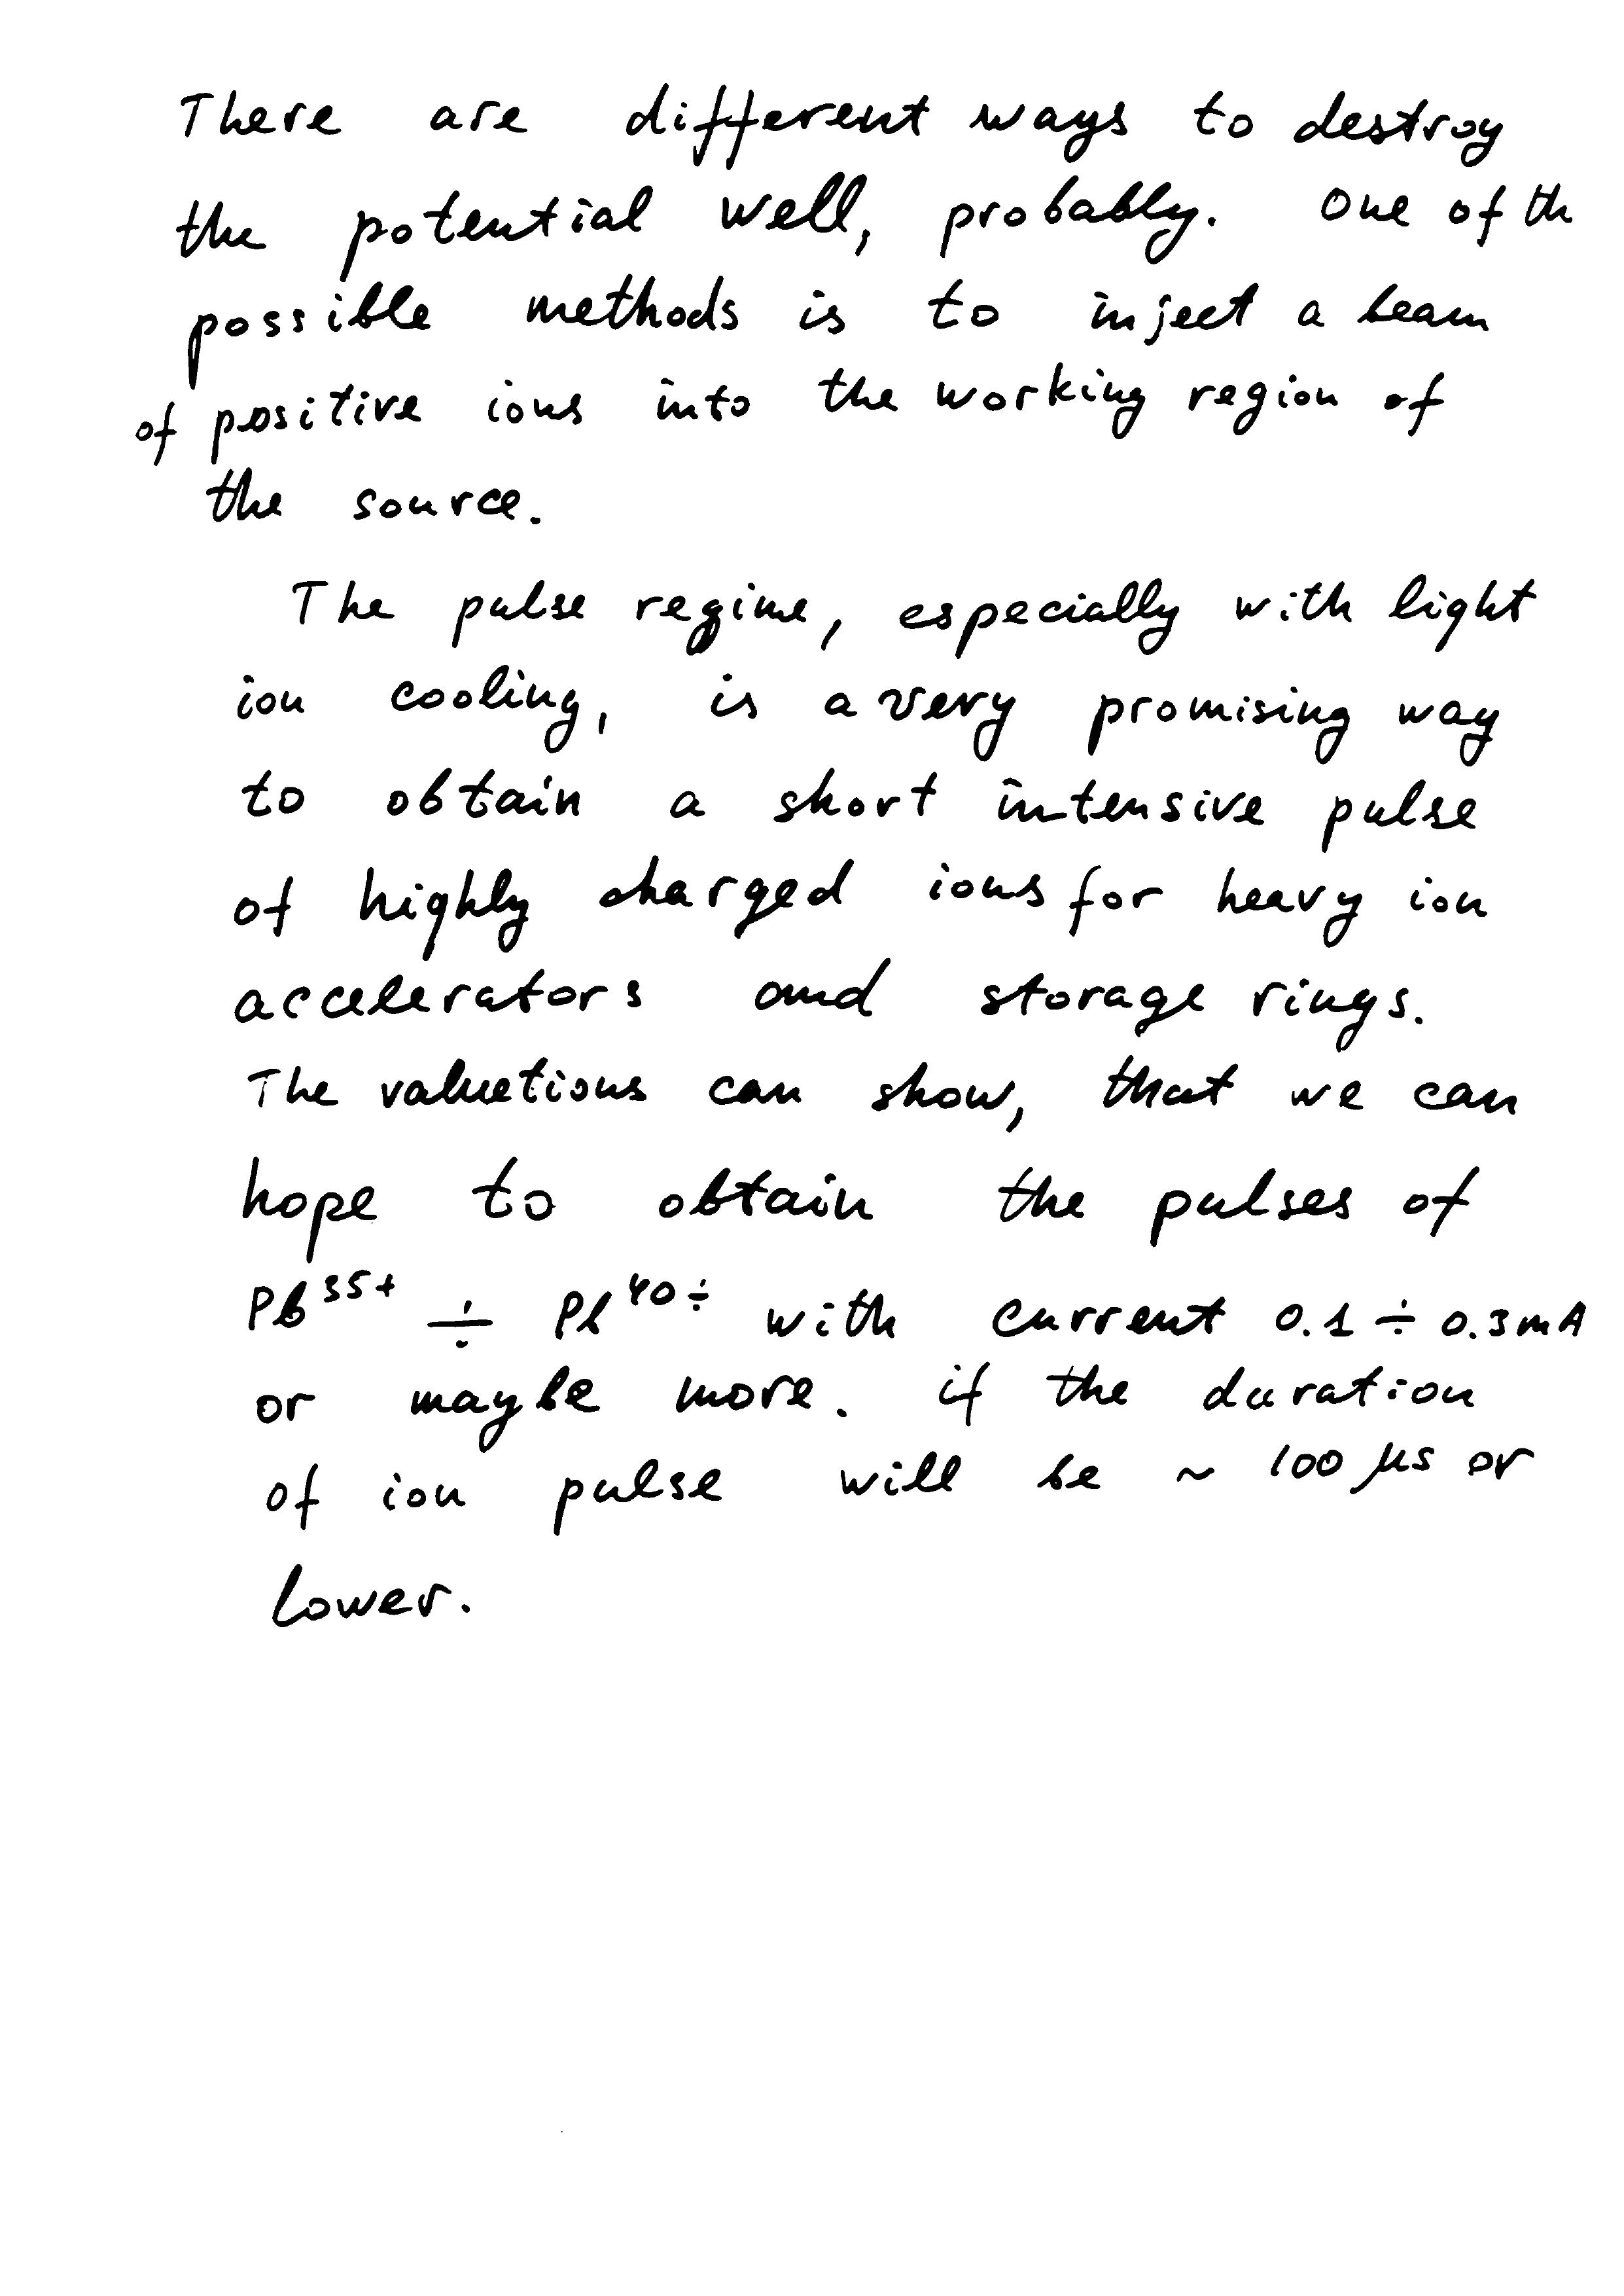 There are different ways to destroy
the potential well, probably. One of th
possible methods is to inject a beam
of positive ions into the working region of
the source.
The pulse regime, especially with light
ion cooling, is a very promising way
to obtain a short intensive pulse
of highly charged ions for heavy ion
accelerators and storage rings.
The valuetions can show, that we can
hope to obtain the pulses of
Pb³⁵⁺ ÷ Pb⁴⁰÷ with current 0.1 ÷ 0.3 mA
or maybe more. if the duration
of ion pulse will be ~ 100 μs or
lower.